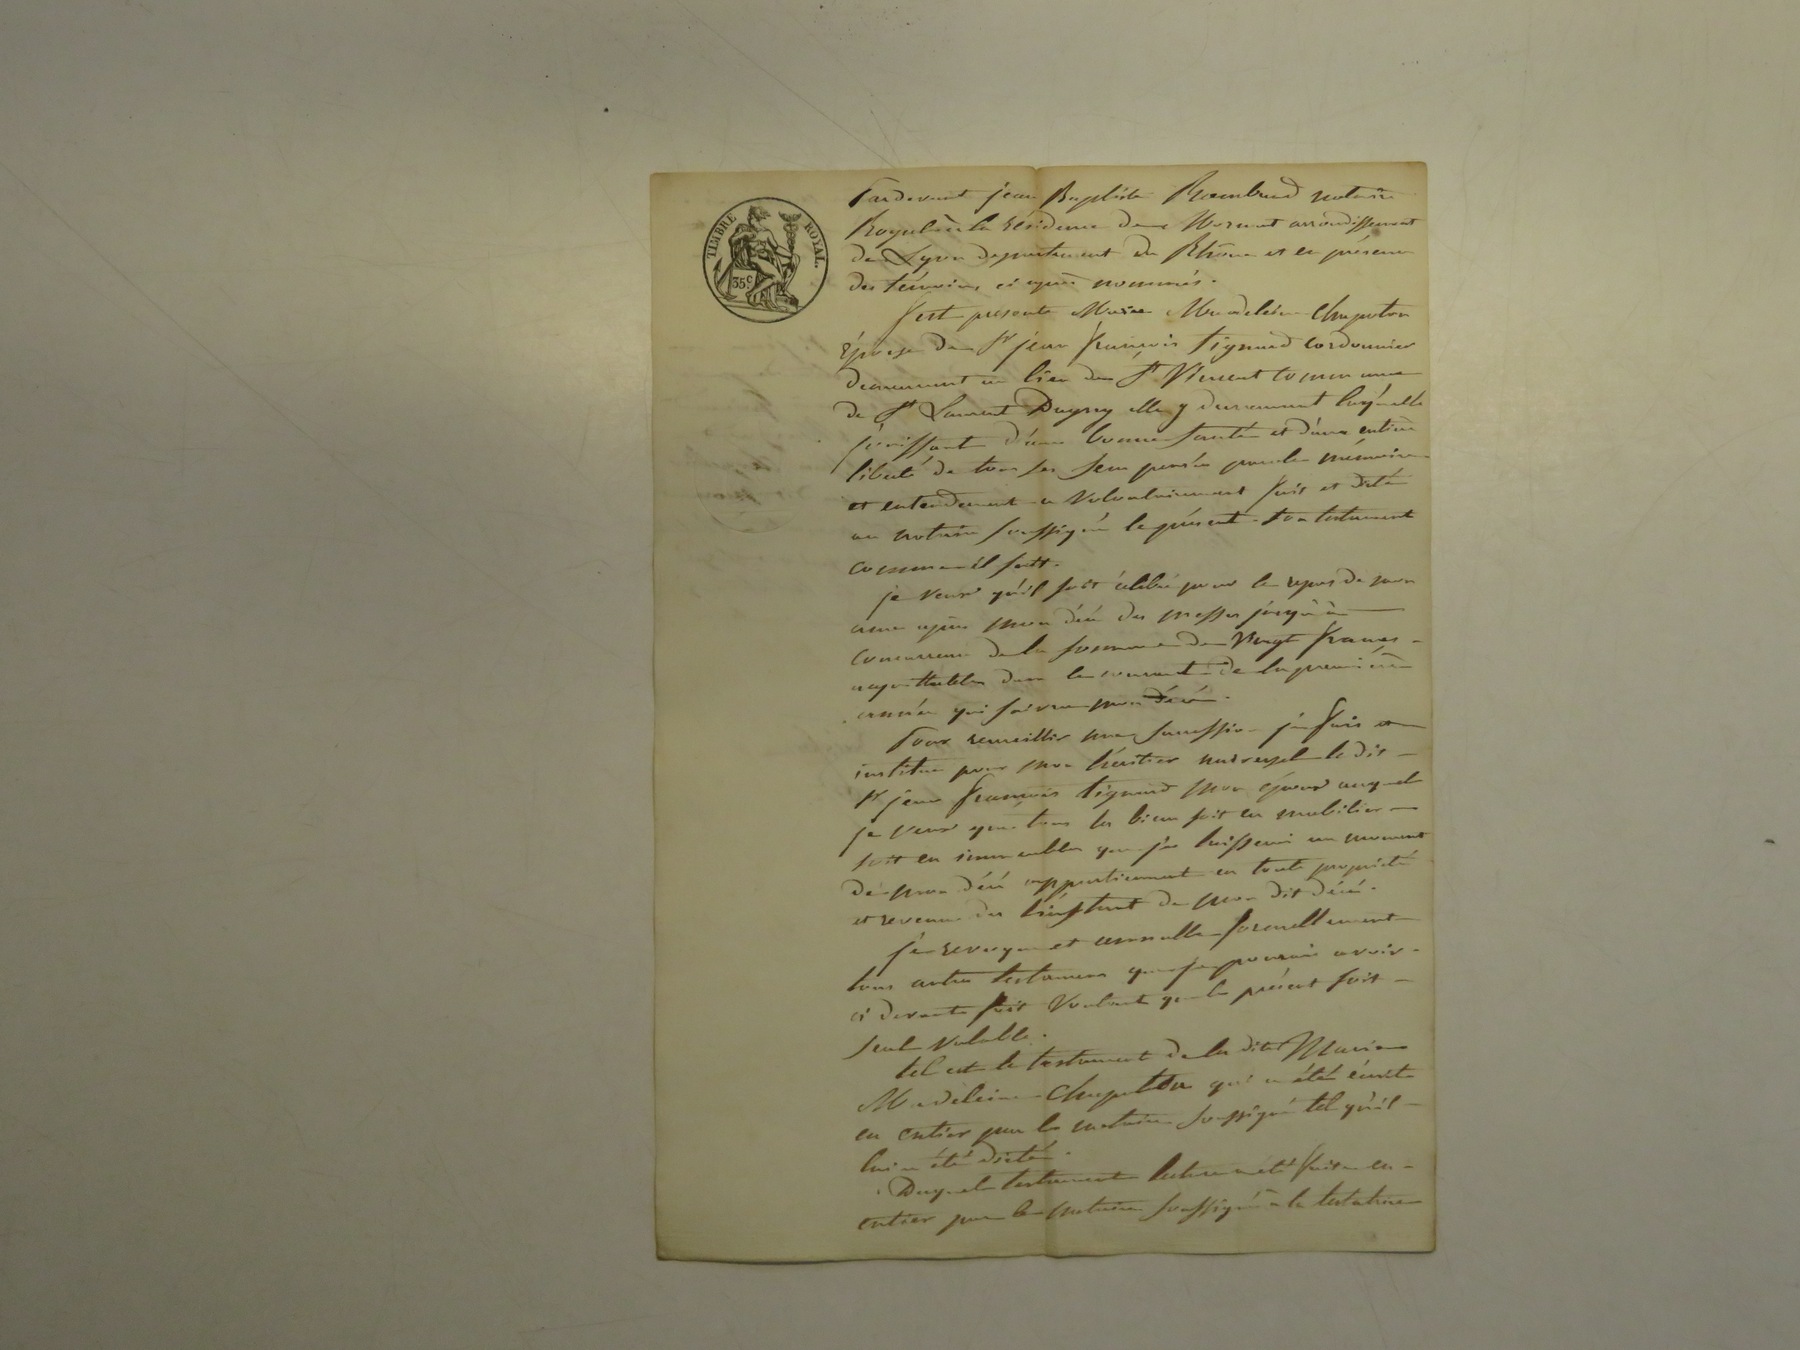 TIMBRE ROYAL.
35c
Pardevant jean Baptiste Rambaud notaire
Royal à la résidence de Mornant arrondissement
de Lyon département du Rhône et en présence
des témoins ci après nommés.
S'est présenté Marie Madeleine Chapoton
épouse de Sr jean françois Signard cordonnier
demeurant au lieu de St Vincent commune
de St Laurent Dagny elle y demeurant laquelle
jouissant d'une bonne santé et d'une entière
liberté de tous ses sens pensée parole mémoire
et entendement a volontairement fait et dicté
au notaire soussigné le présent testament
comme il suit.
je veux qu'il soit célébré pour le repos de mon
ame après mon décé des messes jusqu'à
concurrence de la somme de vingt francs
acquittables dans le courant de la première
année qui suivra mon décé.
Pour recueillir ma succession je fais et
institue pour mon héritier universel le dit
Sr jean françois Signard mon époux auquel
je veux que tous les biens soit en mobilier
soit en immeubles que je laisserai au moment
de mon décé appartiennent en toute propriété
et revenu dès l'instant de mon dit décé.
je revoque et annulle formellement
tous autres testamens que je pourais avoir
ci devant fait voulant que le présent soit
seul valable.
tel est le testament de la dite Marie
Madeleine Chapoton qui a été écrit
en entier par le notaire soussigné tel qu'il
lui a été dicté.
Duquel testament lecture a été faite en
entier par le notaire soussigné à la testatrice